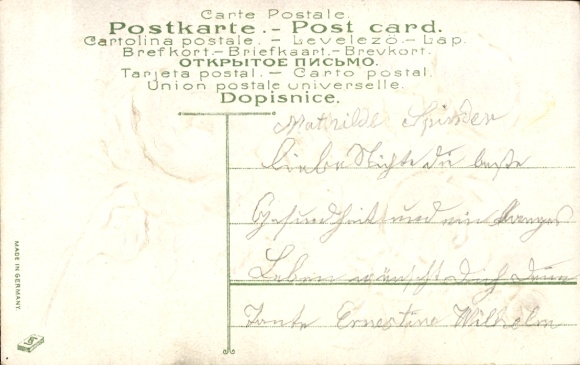 Carte Postale.
Postkarte.- Post card.
Cartolina postale. - Levelező-Lap.
Brefkort.-Briefkaart.-Brevkort.
ОТКРЫТОЕ ПИСЬМО.
Tarjeta postal. - Carto postal.
Union postale universelle.
Dopisnice.
Mathilde
liebe Nichte du beste
Gesundheit und ein langes
Leben wünscht Dich Deine
Tante Ernestine Wilhelm
MADE IN GERMANY.